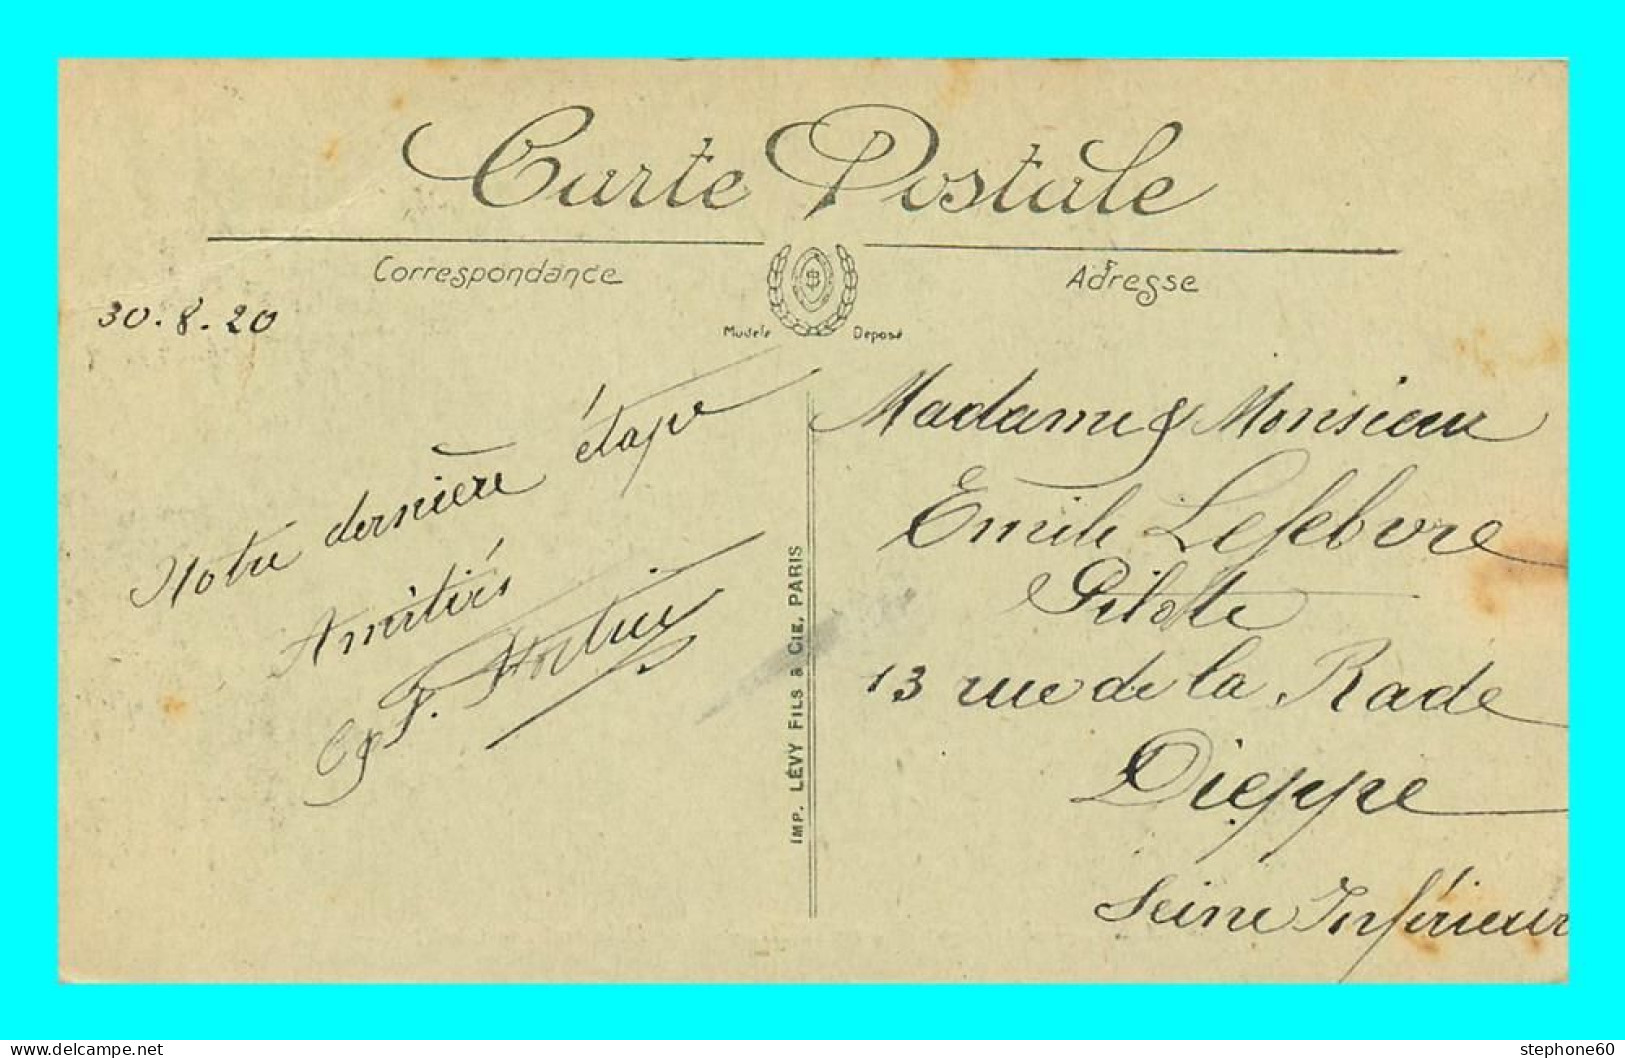 Carte Postale
Correspondance
Adresse
Modèle Déposé
30.8.20
Notre dernière étape
Amitiés
IMP. LÉVY FILS & CIE, PARIS
Madame & Monsieur
Emile Lefebvre
Pilote
13 rue de la Rade
Dieppe
Seine Inférieur
www.delcampe.net
stephone60